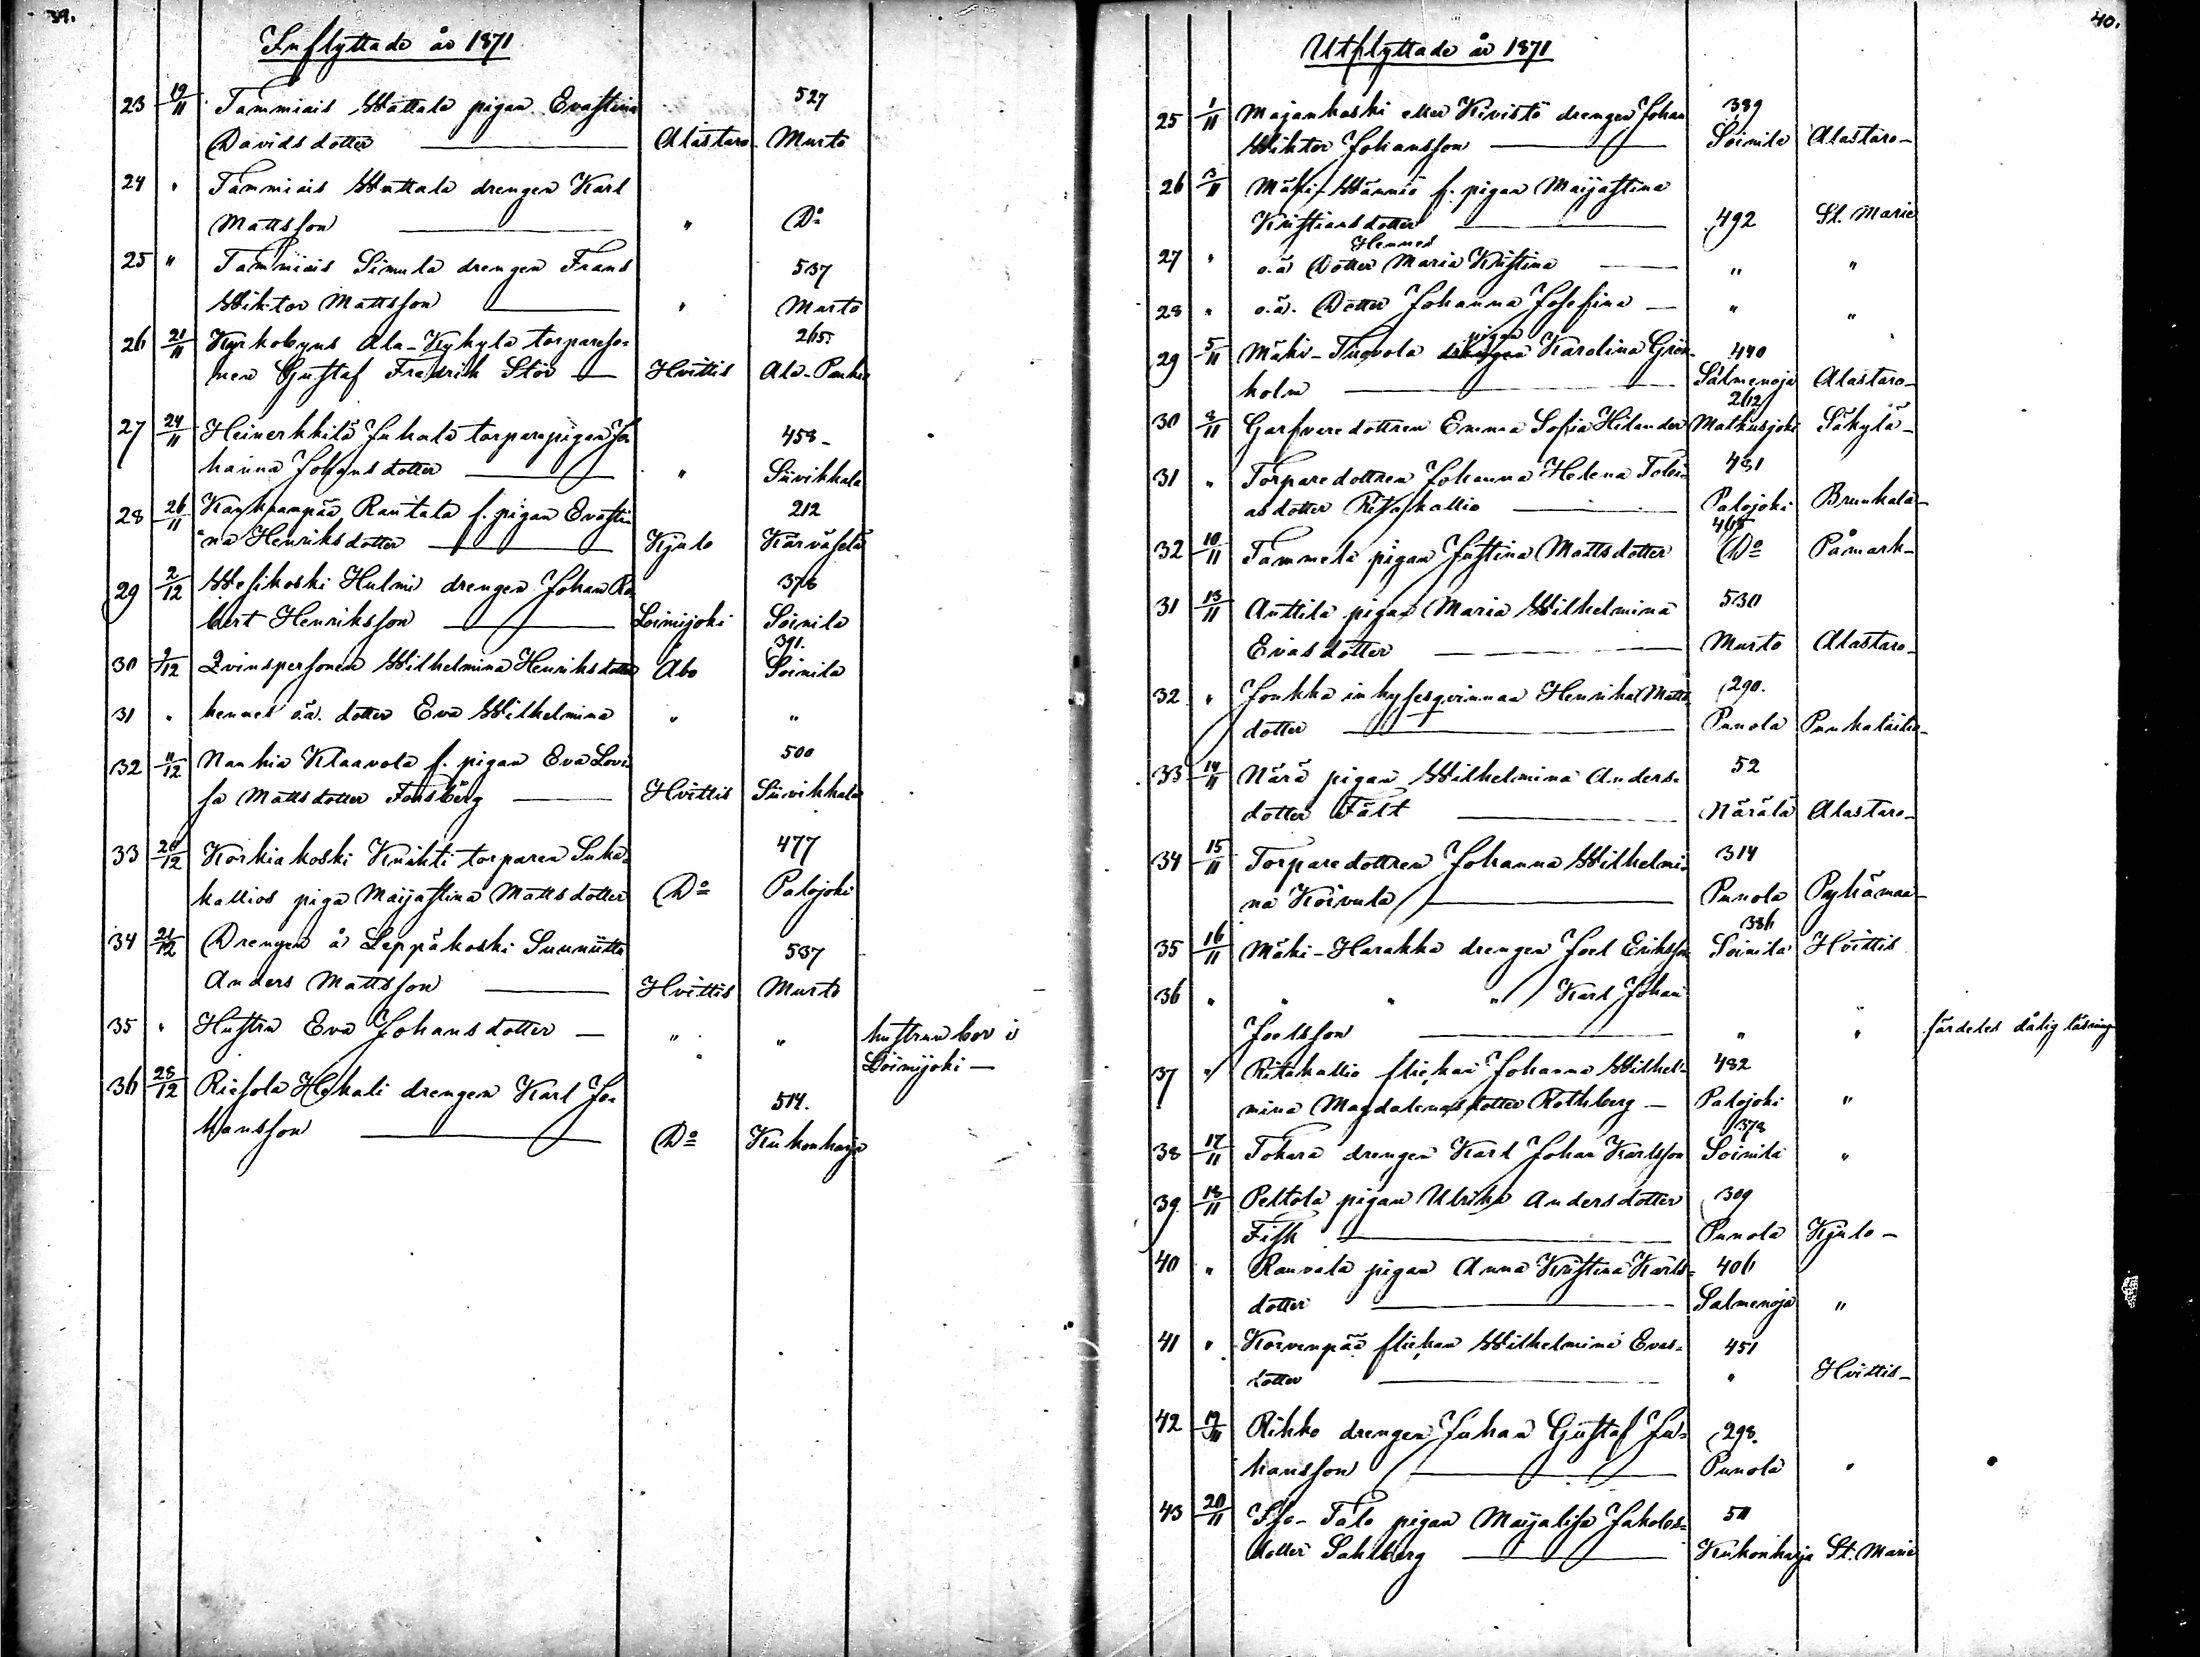 39.
Inflyttade år 1871
23 19/11 Tammiais Wättälä pigan Evastina 527
Davidsdotter Alastaro Murto
24 " Tammiais Wättälä drengen Karl
Mattsson " Do
25 " Tammiais Simula drengen Frans 537
Wiktor Mattsson " Murto
26 21/11 Kyrkobyns Ala-Kyhylä torpareso= 265.
nen Gustaf Fredrik Stör Hvittis Ala-Penkä
27 24/11 Juhala torparepigan Jo 458-
hanna Johansdotter " Siivikkala
28 26/11 Kankaanpää Rautala f. pigan Evasti 212
na Henriksdotter Kjulo Kärväselä
29 2/12 Wesikoski Hulmi drengen Johan Ro 376
bert Henriksson Loimijoki Soinila
391.
30 9/12 Qvinspersonen Wilhelmina Henriksdotter Åbo Soinila
31 " hennes o.ä. dotter Eva Wilhelmina " "
32 11/12 Nanhia Klaavola f. pigan Eva Lovi= 500
sa Mattsdotter Forsberg Hvittis Siivikkala
33 20/12 Korkiakoski Knihti torparen Suka= 477
kallios piga Maijastina Mattsdotter Do Palojoki
34 21/12 Drengen å Leppäkoski Sunniitta 537
Anders Mattsson Hvittis Murto
35 " Hustru Eva Johansdotter " " hustrun bor i
Loimijoki
36 28/12 Riesola Hekali drengen Karl Jo= 514.
hansson Do Kukonharja
40.
Utflyttade år 1871
25 1/11 Majankoski eller Kivistö drengen Johan 389
Wiktor Johansson Soinila Alastaro
26 3/11 Mäki-Wännii f. pigan Maijastina
Kristiansdotter 492 St. Marie
27 " o.ä Hennes Dotter Maria Kristina " "
28 " o.ä. Dotter Johanna Josefina " "
29 5/11 Mäki-Tuovola drengen pigan Karolina Grön= 440
holm Salmenoja Alastaro
262
30 8/11 Garfvaredottren Emma Sofia Helander Matkusjoki Säkylä
31 " Torparedottren Johanna Helena Tobi= 481
asdotter Ritakallio Palojoki Brunkala
465
32 10/11 Tammela pigan Justina Mattsdotter Do Påmark
31 13/11 Anttila pigan Maria Wilhelmina 530
Evasdotter Murto Alastaro
32 " Joukka inhysesqvinnan Henrika Matts 290.
dotter Punola Punkalaitio
33 14/11 Närä pigan Wilhelmina Anders= 52
dotter Fält Närälä Alastaro
34 15/11 Torparedottren Johanna Wilhelmi= 314
na Koivula Punola Pyhämaa
386
35 16/11 Mäki-Harakka drengen Joel Eriksson Soinila Hvittis
36 " " " " Karl Johan
Joelsson " " särdeles dålig läsning
37 " Ritakallio flickan Johanna Wilhel= 482
mina Magdalenasdotter Rothberg Palojoki "
378
38 17/11 Tokara drengen Karl Johan Karlsson Soinila "
39 18/11 Peltola pigan Ulrika Andersdotter 309
Fisk Punola Kjulo
40 " Rauvala pigan Anna Kristina Karls= 406
dotter Salmenoja "
41 " Korvenpää flickan Wilhelmina Evas= 451
dotter " Hvittis
42 19/11 Rihko drengen Juhan Gustaf Ju= 298.
hansson Punola "
43 20/11 Iso-Talo pigan Maijalisa Jakobs= 511
dotter Sahlberg Kukonharja St. Marie